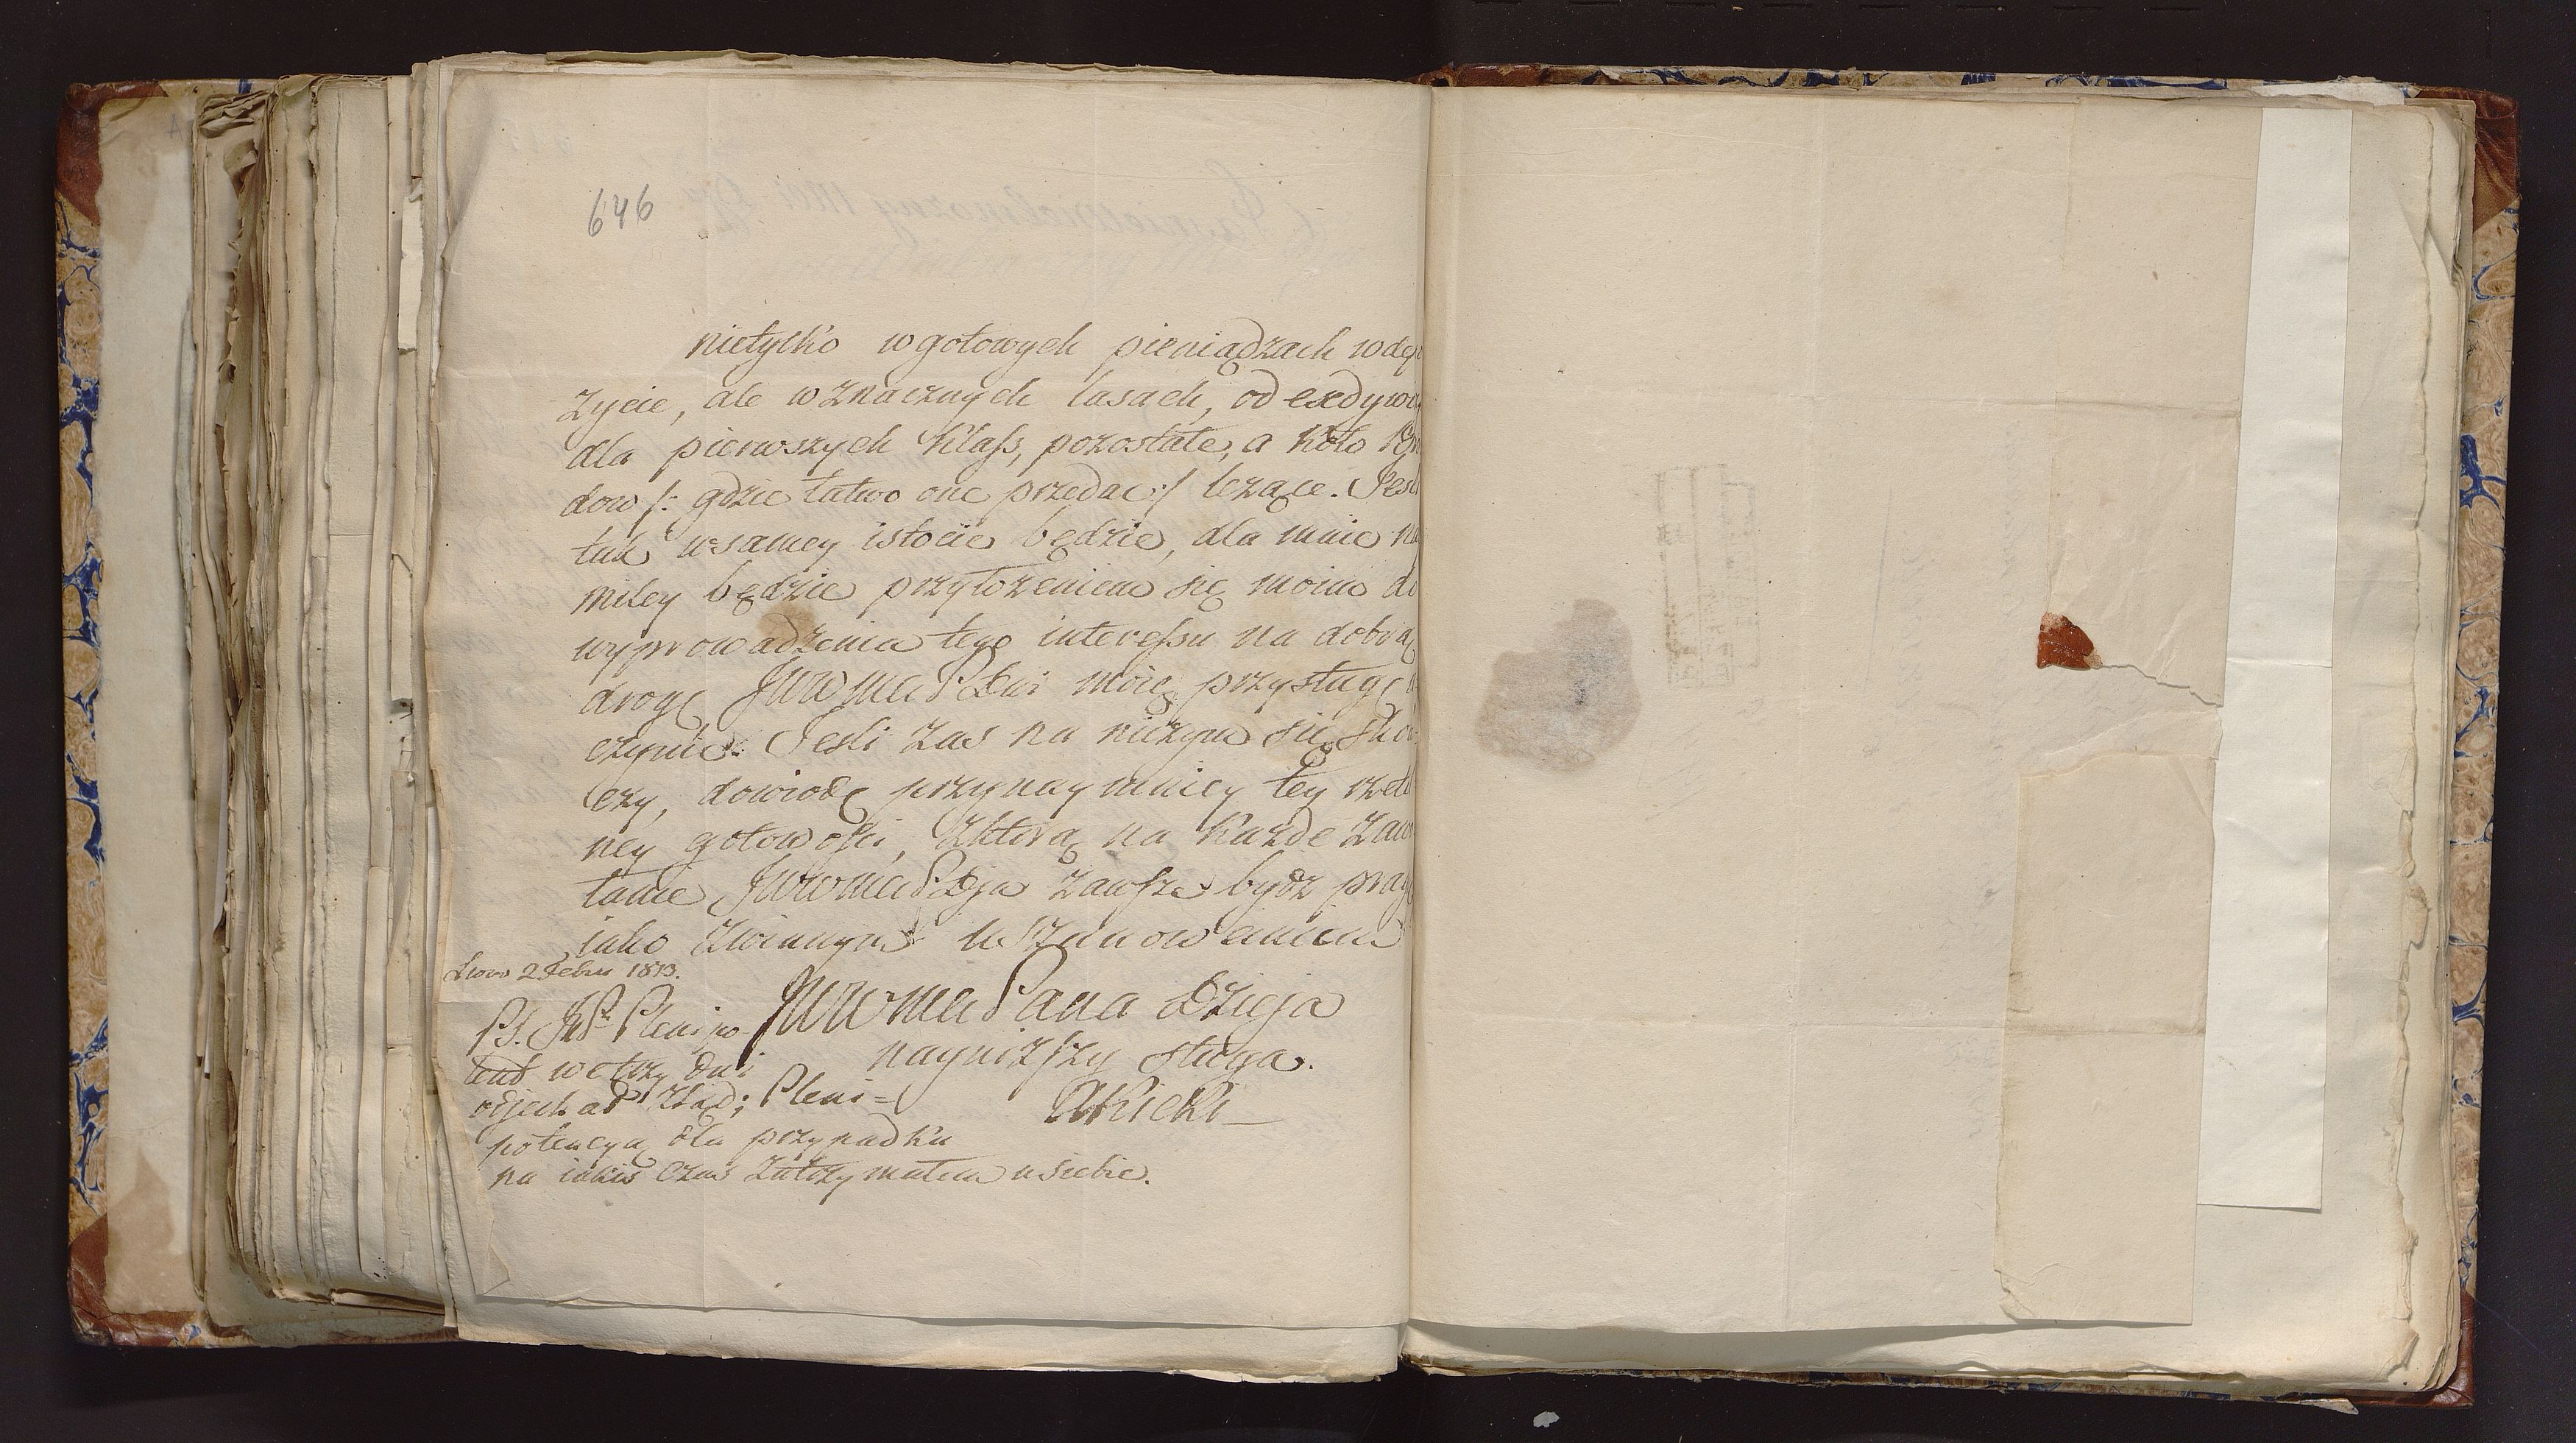 646
nietylko w gotowych pieniądzach w dep
życie, ale w znacznych lasach, od exdywi
dla pierwszych klass, pozostałe, a koło
dow /: gdzie łatwo one przedać :/ leżące. Jesli
tak w samey istocie będzie, dla mnie na
miley będzie przyłożeniem się moim do
wyprowadzenia tego interessu na dobrą
drogę JWWMci P. Dwi moię przysługę u
czynić. Jesli zas na niczym się skoń
czy, dowiodę przynaymniey tey rzetel
ney gotowości, z którą na każde zawo
łanie JWWMci P. Dja zawsze bydz prag
iako z winnym uszanowaniem
Lwow 2 Febru 1813.
JWWMci Pana Dzieja
nayniższy sługa.
PS. JP. Plenipo-
tent we trzy dni
odjechał ztąd; Pleni=
potencyą dla przypadku
na iakis czas zatrzymałem u siebie.